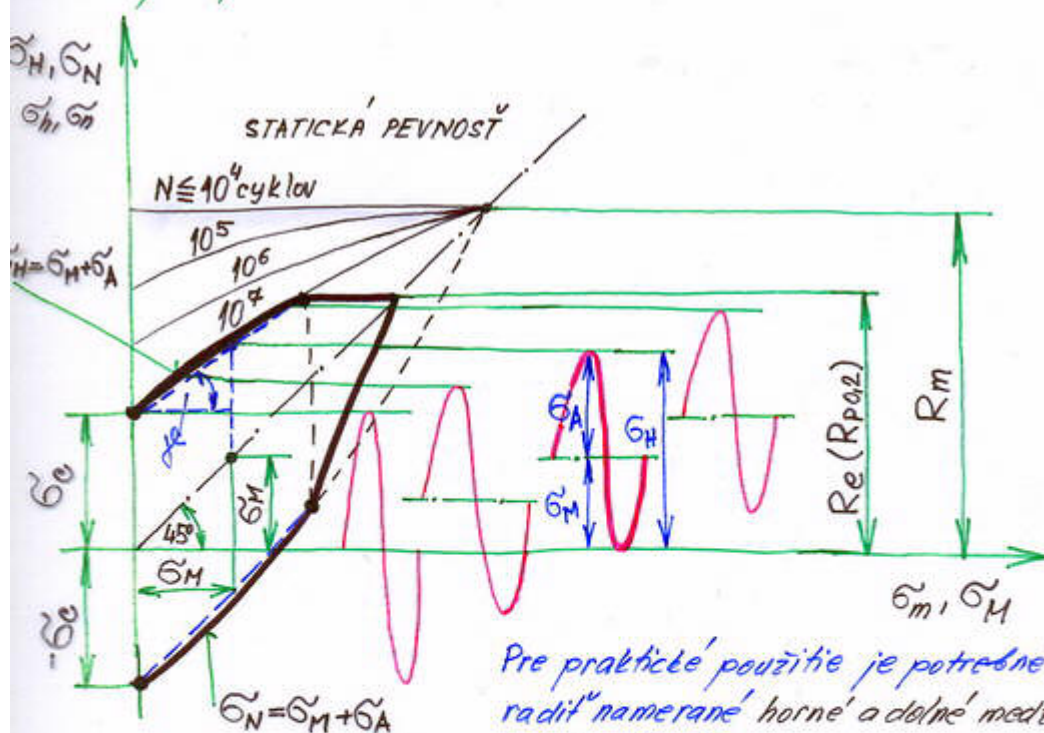 σH, σN
σh, σn
STATICKÁ PEVNOSŤ
N ≦ 10⁴ cyklov
10⁵
10⁶
10⁷
σH = σM + σA
σc
-σc
45°
σM
σM
σA
σM
σH
Re (Rp0,2)
Rm
σm, σM
σN = σM + σA
Pre praktické použitie je potrebne
radiť namerané horné a dolné